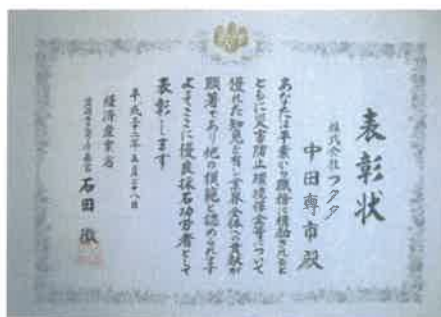 表彰状
株式会社フクタ
中田専市殿
あなたは平素から職務に精励されると
ともに災害防止環境保全等について
優れた知見を有し業界全体への貢献が
顕著であり他の模範と認められます
よってここに優良採石功労者として
表彰します
平成二十二年五月二十八日
経済産業省
資源エネルギー庁長官 石田 徹